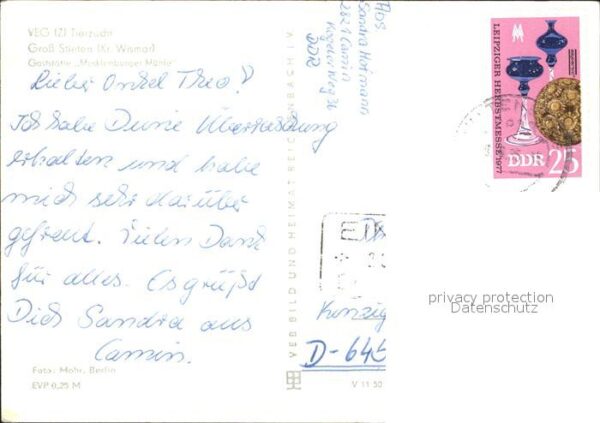 VEG (Z) Tierzucht
Groß Stieten (Kr. Wismar)
Gaststätte „Mecklenburger Mühle"
Lieber Onkel Theo!
Ich habe Deine Überraschung
erhalten und habe
mich sehr darüber
gefreut. Vielen Dank
für alles. Es grüßt
Dich Sandra aus
Camin.
Foto: Mohr, Berlin
EVP 0,25 M
VEB BILD UND HEIMAT REICHENBACH I V
V 11 50
Abs
Sandra Hofmann
2821 Camin
DDR
EIN
Kinzig
D-645
LEIPZIGER HERBSTMESSE 1977
DDR 25
privacy protection
Datenschutz